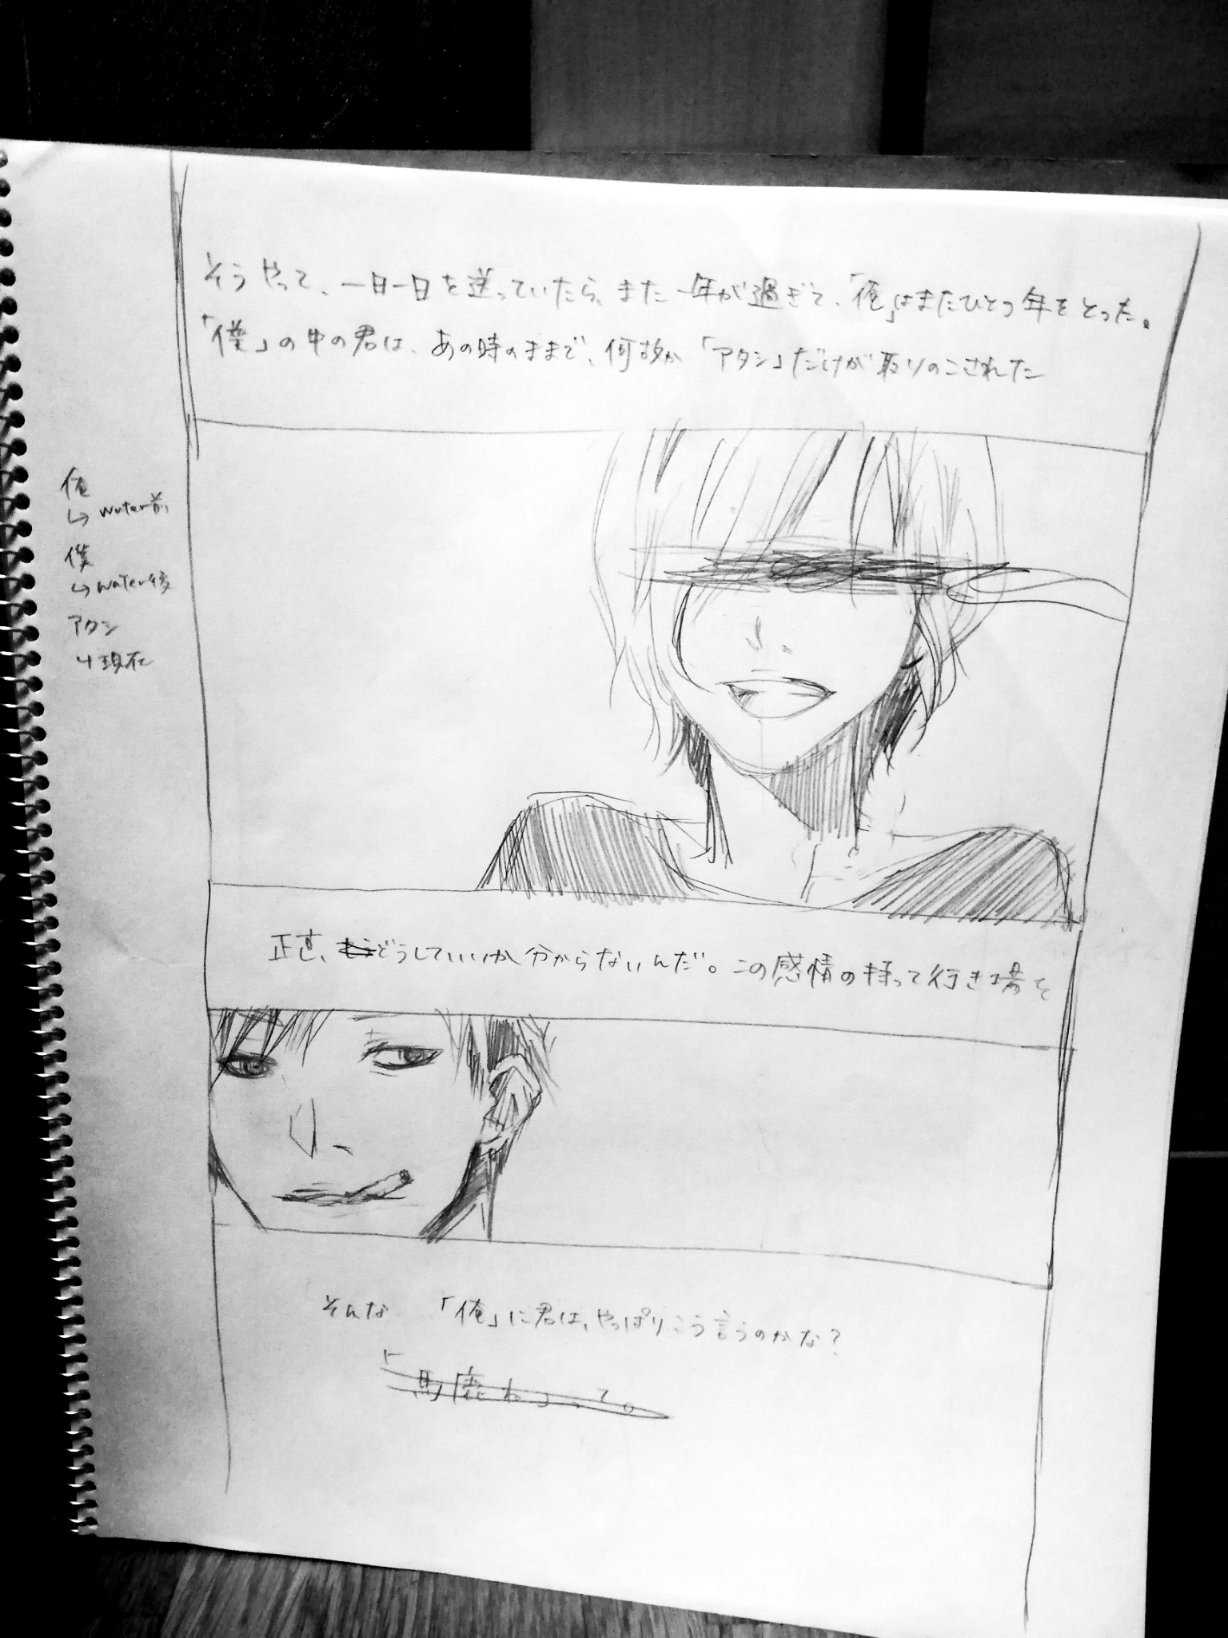 そうやって、一日一日を送っていたら、また一年が過ぎて、「俺」はまたひとつ年をとった。
「僕」の中の君は、あの時のままで、何故か「アタシ」だけが取りのこされた
俺
↳ water前
僕
↳ water後
アタシ
↳ 現在
正直、どうしていいか分からないんだ。この感情の持って行き場を
そんな 「俺」に君は、やっぱりこう言うのかな？
「馬鹿ねって。